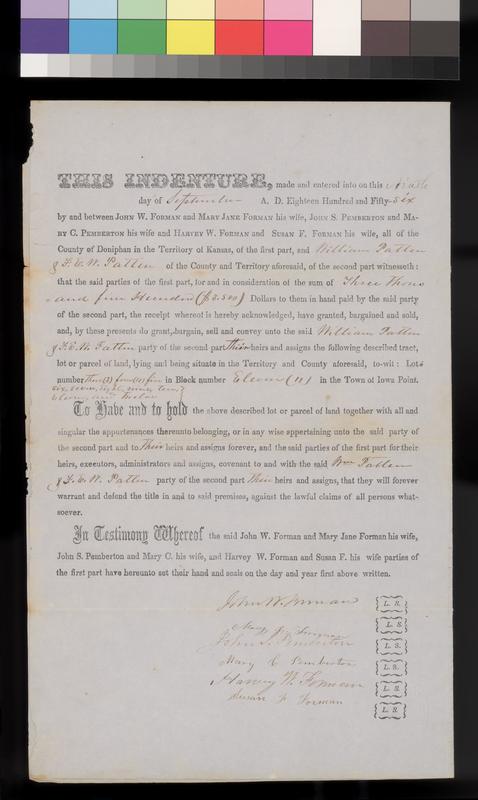 THIS INDENTURE, made and entered into on this
day of September A. D. Eighteen Hundred and Fifty-Six
by and between JOHN W. FORMAN and MARY JANE FORMAN his wife, JOHN S. PEMBERTON and MA-
RY C. PEMBERTON his wife and HARVEY W. FORMAN and SUSAN F. FORMAN his wife, all of the
County of Doniphan in the Territory of Kansas, of the first part, and William Patten
& F. E. W. Patten of the County and Territory aforesaid, of the second part witnesseth:
that the said parties of the first part, for and in consideration of the sum of Three Thous
and five Hundred ($3.500) Dollars to them in hand paid by the said party
of the second part, the receipt whereof is hereby acknowledged, have granted, bargained and sold,
and, by these presents do grant, bargain, sell and convey unto the said William Patten
& F. E. W. Patten party of the second part Their heirs and assigns the following described tract,
lot or parcel of land, lying and being situate in the Territory and County aforesaid, to-wit: Lots
number Three (3) four (4) five in Block number Eleven (11) in the Town of Iowa Point.
six, seven, eight, nine, ten,
Eleven, and Twelve
To Have and to hold the above described lot or parcel of land together with all and
singular the appurtenances thereunto belonging, or in any wise appertaining unto the said party of
the second part and to Their heirs and assigns forever, and the said parties of the first part for their
heirs, executors, administrators and assigns, covenant to and with the said Wm Patten
& F. E. W. Patten party of the second part Their heirs and assigns, that they will forever
warrant and defend the title in and to said premises, against the lawful claims of all persons what-
soever.
In Testimony Whereof the said John W. Forman and Mary Jane Forman his wife,
John S. Pemberton and Mary C. his wife, and Harvey W. Forman and Susan F. his wife parties of
the first part have hereunto set their hand and seals on the day and year first above written.
John W. Forman L. S.
Mary J. Forman L. S.
John S. Pemberton L. S.
Mary C Pemberton L. S.
Harvey W. Forman L. S.
Susan F Forman L. S.